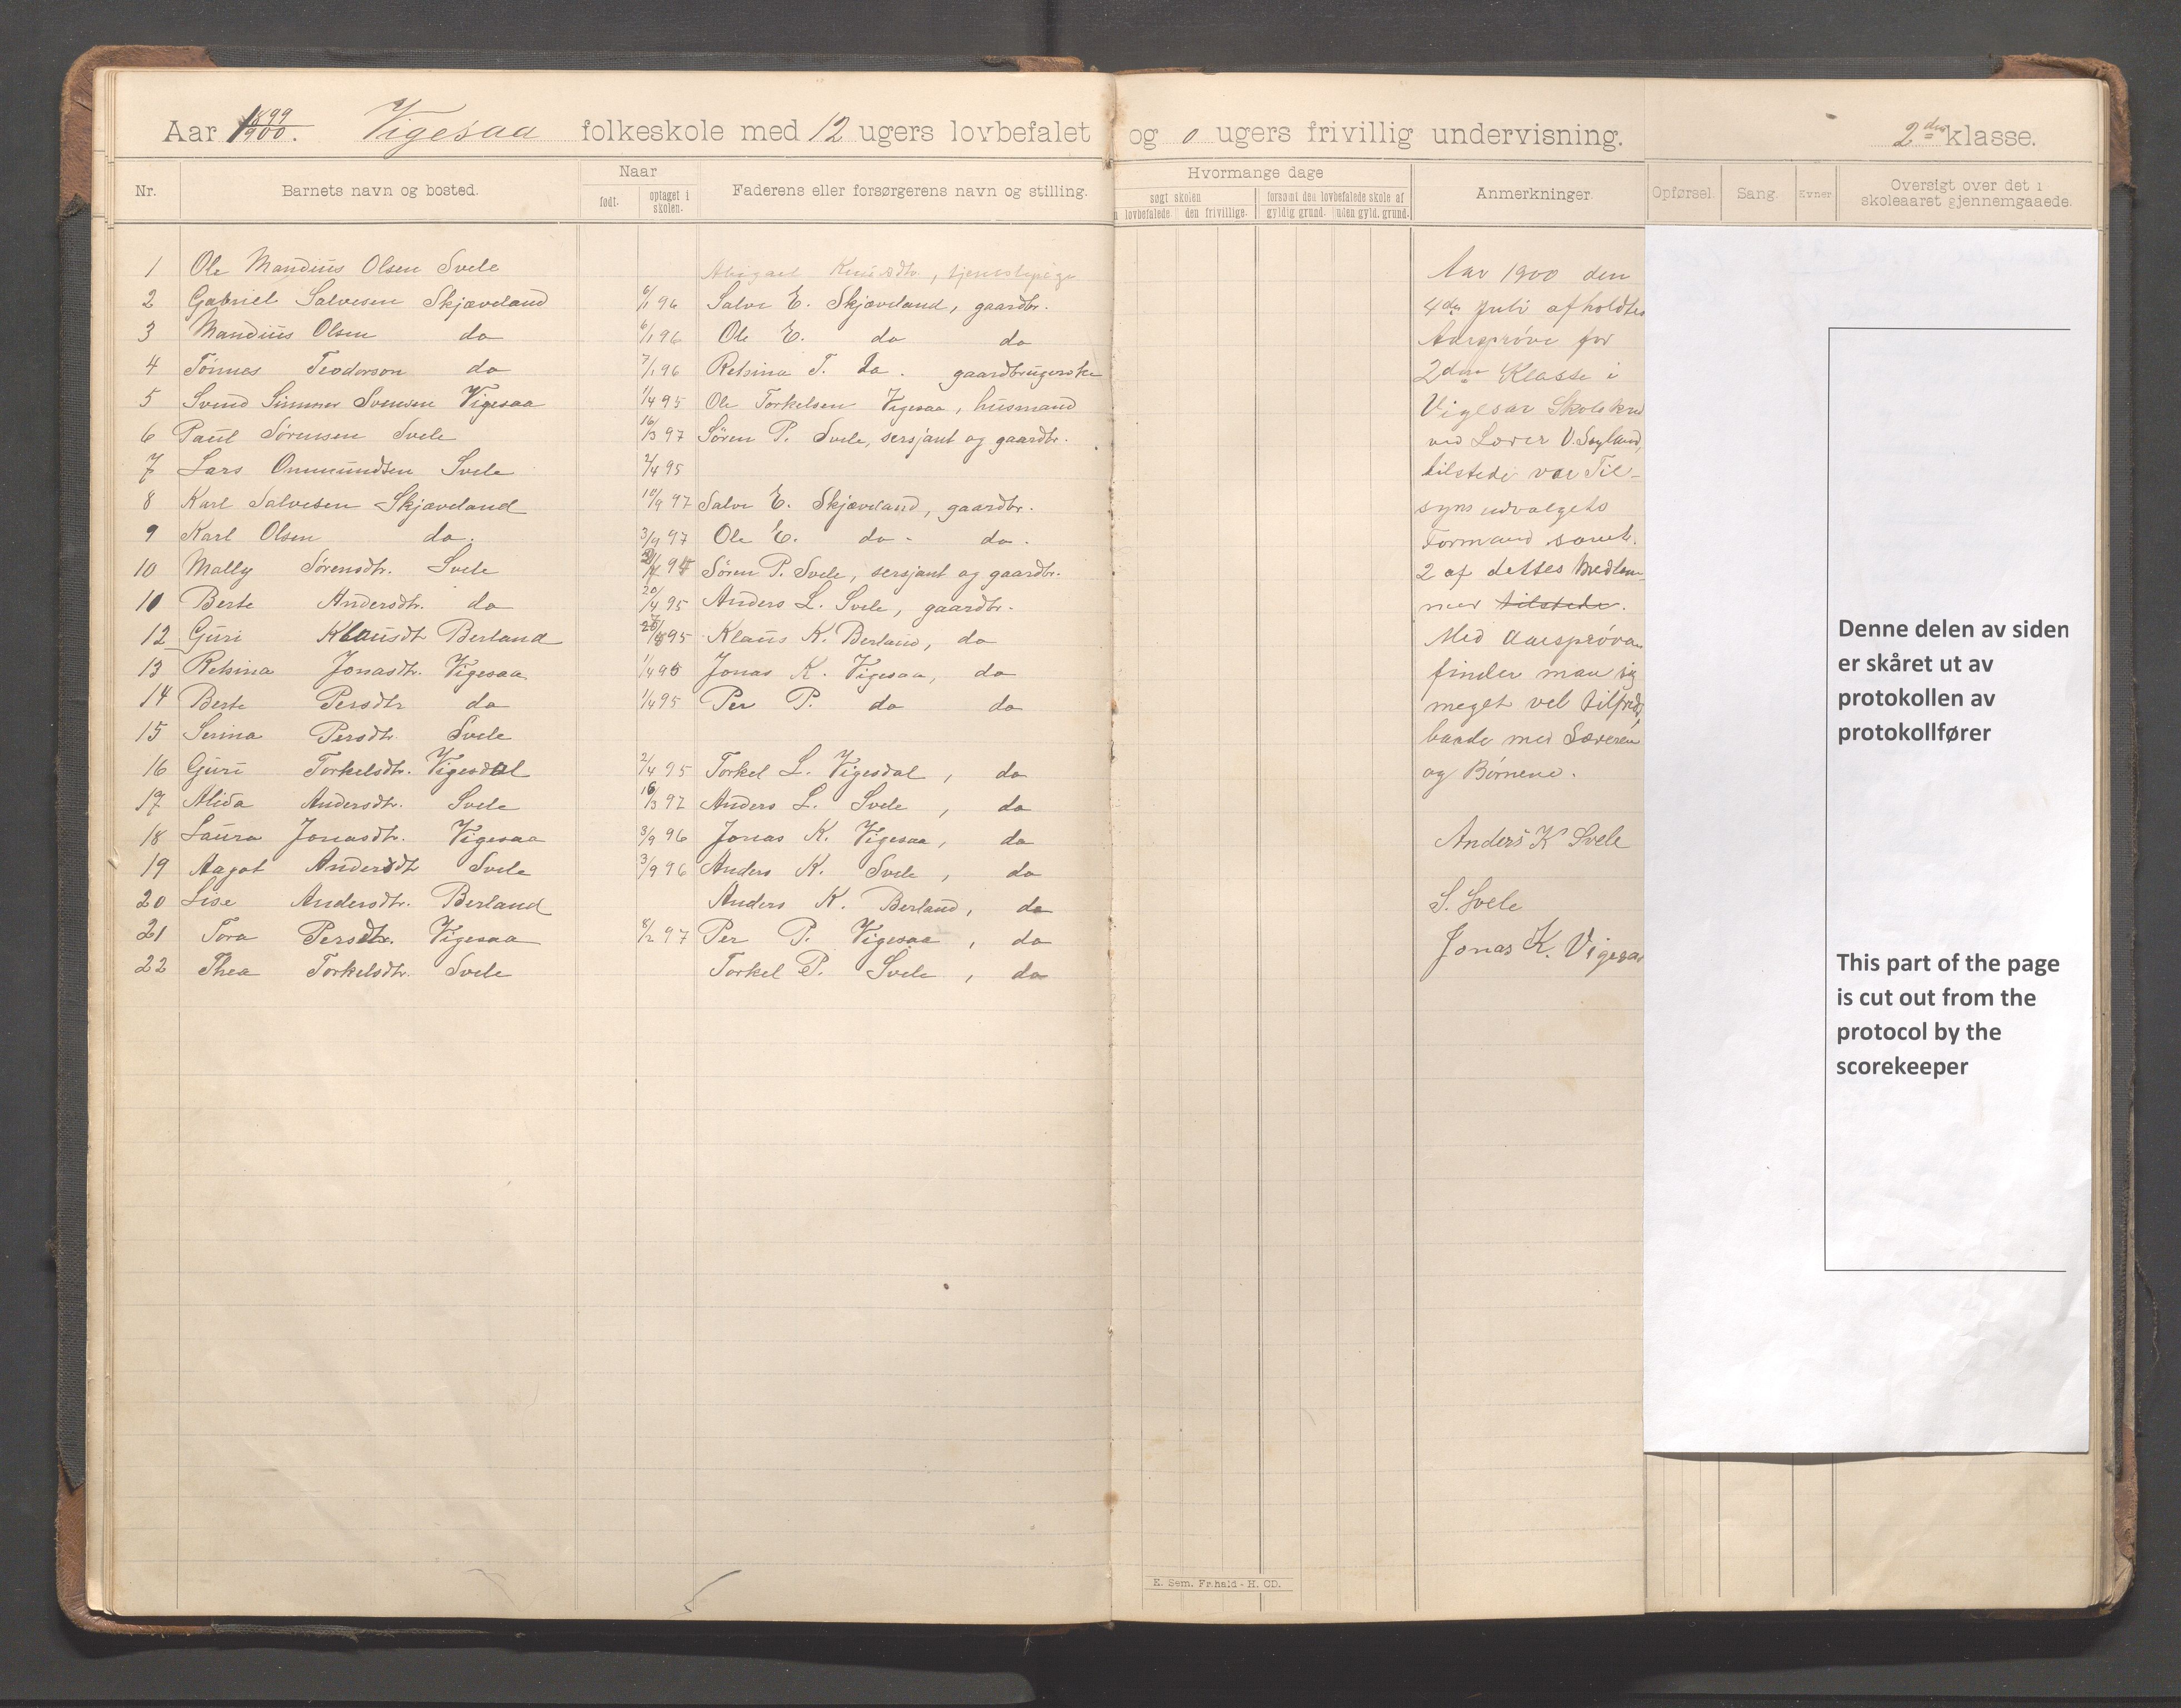 Aar 1899/1900. Vigesaa folkeskole med 12 ugers lovbefalet og 0 ugers frivillig undervisning. 2den klasse.
Nr. Barnets navn og bosted. Naar født. optaget i skolen. Faderens eller forsørgerens navn og stilling. Hvormange dage søgt skolen lovbefalede den frivillige. forsømt den lovbefalede skole af gyldig grund. uden gyld. grund. Anmerkninger. Opførsel. Sang. Evner. Oversigt over det i skoleaaret gjennemgaaede.
1 Ole Mandius Olsen Svele Abigael Knudsdtr., tjenestepige
2 Gabriel Salvesen Skjæveland 6/1 96 Salve E. Skjæveland, gaardbr.
3 Mandius Olsen do 6/1 96 Ole E. do do
4 Tönnes Teodorson do 7/1 96 Retsina T. do. gaardbrugerske
5 Svend Simmer Svensen Vigesaa 1/4 95 Ole Torkelsen Vigesaa, husmand
6 Paul Sørensen Svele 16/3 97 Sören P. Svele, sersjant og gaardbr.
7 Lars Ommundsen Svele 2/4 95
8 Karl Salvesen Skjæveland 10/9 97 Salve E. Skjæveland, gaardbr.
9 Karl Olsen do. 3/9 97 Ole E. do - do.
10 Mally Sørensdtr. Svele Sören P. Svele, sersjant og gaardbr.
10 Berte Andersdtr. do 20/4 95 Anders L. Svele, gaardbr.
12 Guri Klausdt Berland 95 Klaus K. Berland, do
13 Retsina Jonasdtr. Vigesaa 1/4 95 Jonas K. Vigesaa, do
14 Berte Persdtr do 1/4 95 Per P. do do
15 Serina Persdtr. Svele
16 Guri Torkelsdtr. Vigesdal 2/4 95 Torkel L. Vigesdal, do
17 Alida Andersdtr. Svele 16/3 97 Anders L. Svele, do
18 Laura Jonasdtr. Vigesaa 3/9 96 Jonas K. Vigesaa, do
19 Aagot Andersdt Svele 3/9 96 Anders K. Svele, do
20 Lise Andersdtr. Berland Anders K. Berland, do
21 Tora Persdtr. Vigesaa 8/2 97 Per P. Vigesaa, do
22 Thea Torkelsdtr. Svele Torkel P. Svele, do
Aar 1900 den
4de Juli afholdtes
Aarsprøve for
2den Klasse i
Vigesaa Skolekred
ved Lærer O. Søyland,
tilstede var Til-
synsudvalgets
Formand samt.
2 af dettes Medlem-
mer tilstede.
Med Aarsprøven
finder man sig
meget vel tilfreds,
baade med Læreren
og Børnene.
Anders K Svele
S. Svele
Jonas K. Vigesaa
Denne delen av siden
er skåret ut av
protokollen av
protokollfører
This part of the page
is cut out from the
protocol by the
scorekeeper
E. Sem. Fr.hald - H. CD.